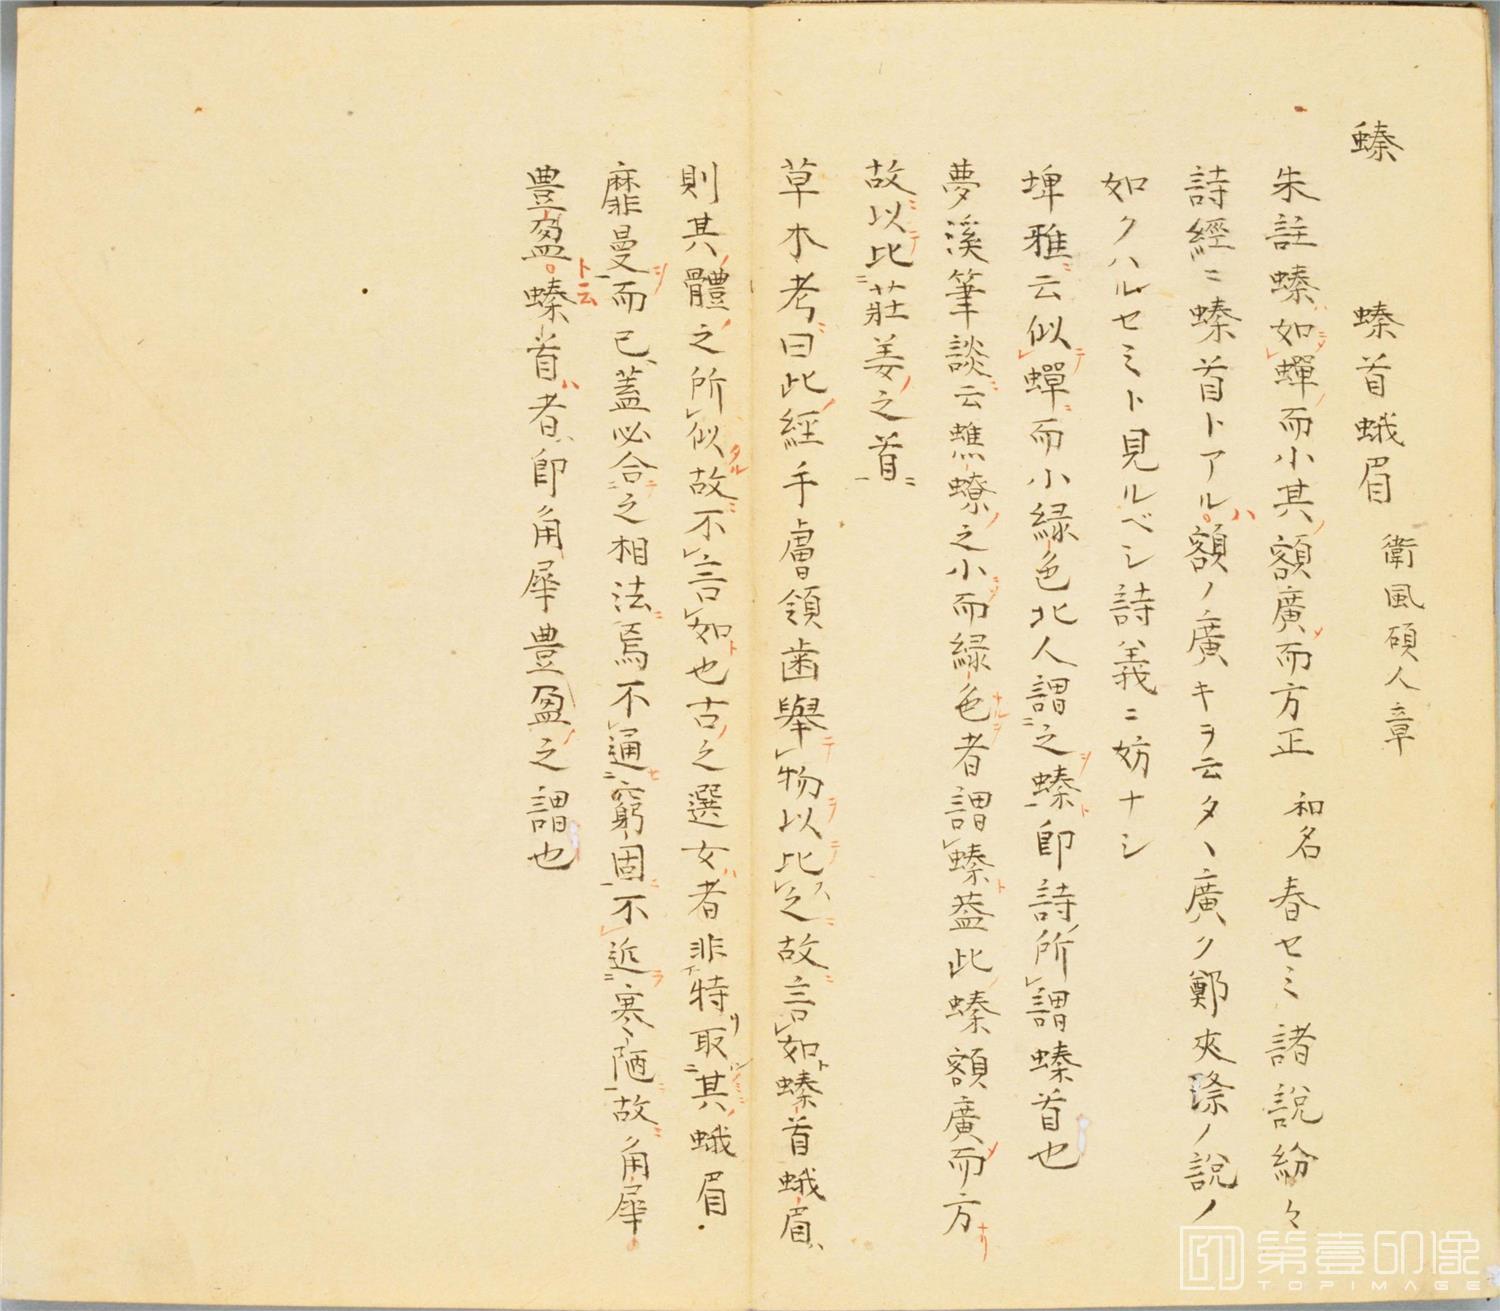 螓　螓首蛾眉　衛風碩人章
朱註螓如蟬而小其額廣而方正　和名春セミ諸說紛々
詩經ニ螓首トアルハ額ノ廣キヲ云タヽ廣ク鄭夾漈ノ說ノ
如クハルセミト見ルベシ詩義ニ妨ナシ
埤雅云似蟬而小緑色北人謂之螓即詩所謂螓首也
夢溪筆談云蟭蟟之小而緑色者謂螓葢此螓額廣而方
故以比莊姜之首
草木考曰此経手膚領歯舉物以比之故言如螓首蛾眉
則其體之所似故不言如也古之選女者非特取其蛾眉
靡曼而已蓋必合之相法焉不通窮固不近寒陋故角犀
豊盈ト云螓首ハ者即角犀豊盈之謂也
第壹印像
TOPIMAGE